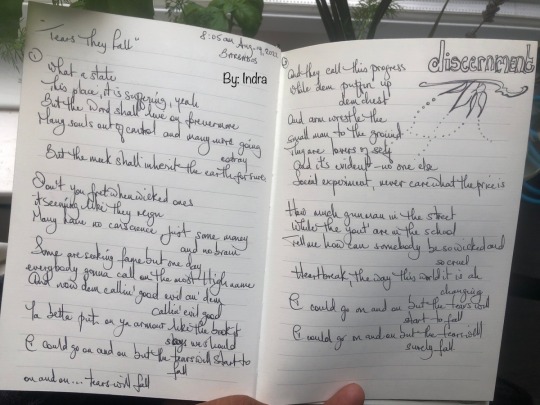 "Tears They Fall"
8:05am Aug 19, 2022
Barbados
By: Indra
①
What a state
This place, it is suffering, yeah
But the Word shall live on forevermore
Many souls out of control and many more going
astray
But the meek shall inherit the earth, for sure
Don't you fret when wicked ones
it seeming like they reign
Many have no conscience just some money
and no brain
Some are seeking fame but one day
everybody gonna call on the most High name
And now dem callin' good evil an' dem
callin' evil good
Ya better put on ya armour like the book it
says we should
I could go on and on but the tears will start to
fall
on and on... tears will fall
discernment
And they call this progress
while dem puffin up
dem chest
And arm wrestle the
small man to the ground
They are lovers of self
And it's evident - no one else
Social experiment, never care what the price is
How much gunman in the street
While the yout' are in the school
Tell me how can somebody be so wicked and
so cruel
Heartbreak, the way this world it is ah
changing
I could go on and on but the tears will
start to fall
I could go on and on but the tears will
surely fall